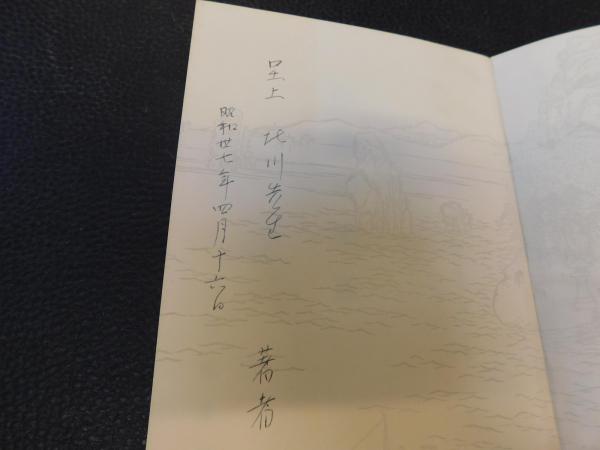 呈上 北川先生
昭和卅七年四月十六日
著者